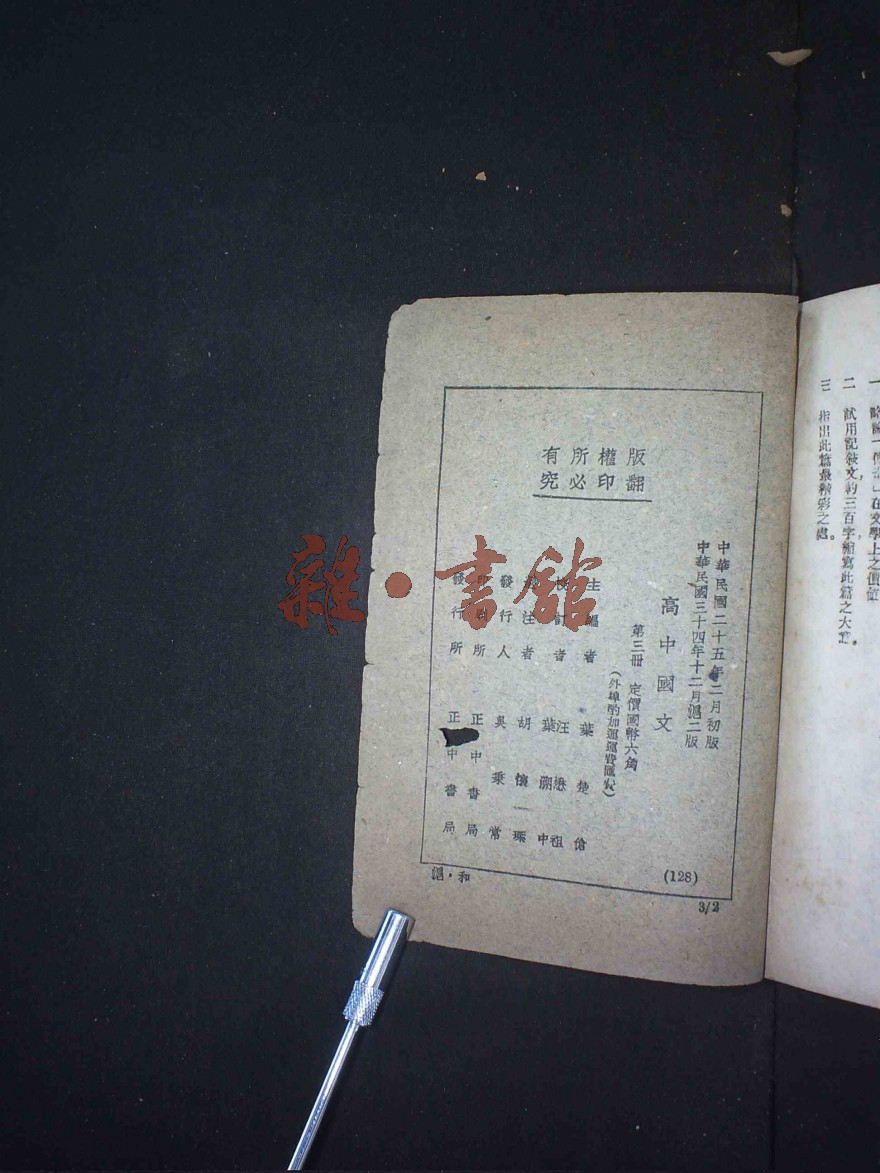 一
二　試用記敍文約三百字縮寫此篇之大意。
三　指出此篇最精彩之處。
版權所有
翻印必究
中華民國二十五年二月初版
中華民國三十四年十二月滬二版
高中國文
第三册　定價國幣六角
（外埠酌加運費匯費）
主編者　葉楚傖
校訂者　汪懋祖　葉溯中
選注者　胡懷琛
發行人　吳秉常
印刷所　正中書局
發行所　正中書局
(128)
滬．和
3/2
雜·書館